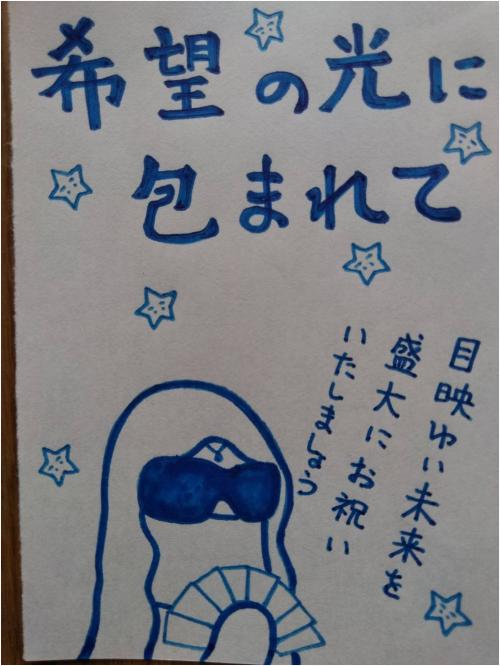 希望の光に
包まれて
目映ゆい未来を
盛大にお祝い
いたしましょう